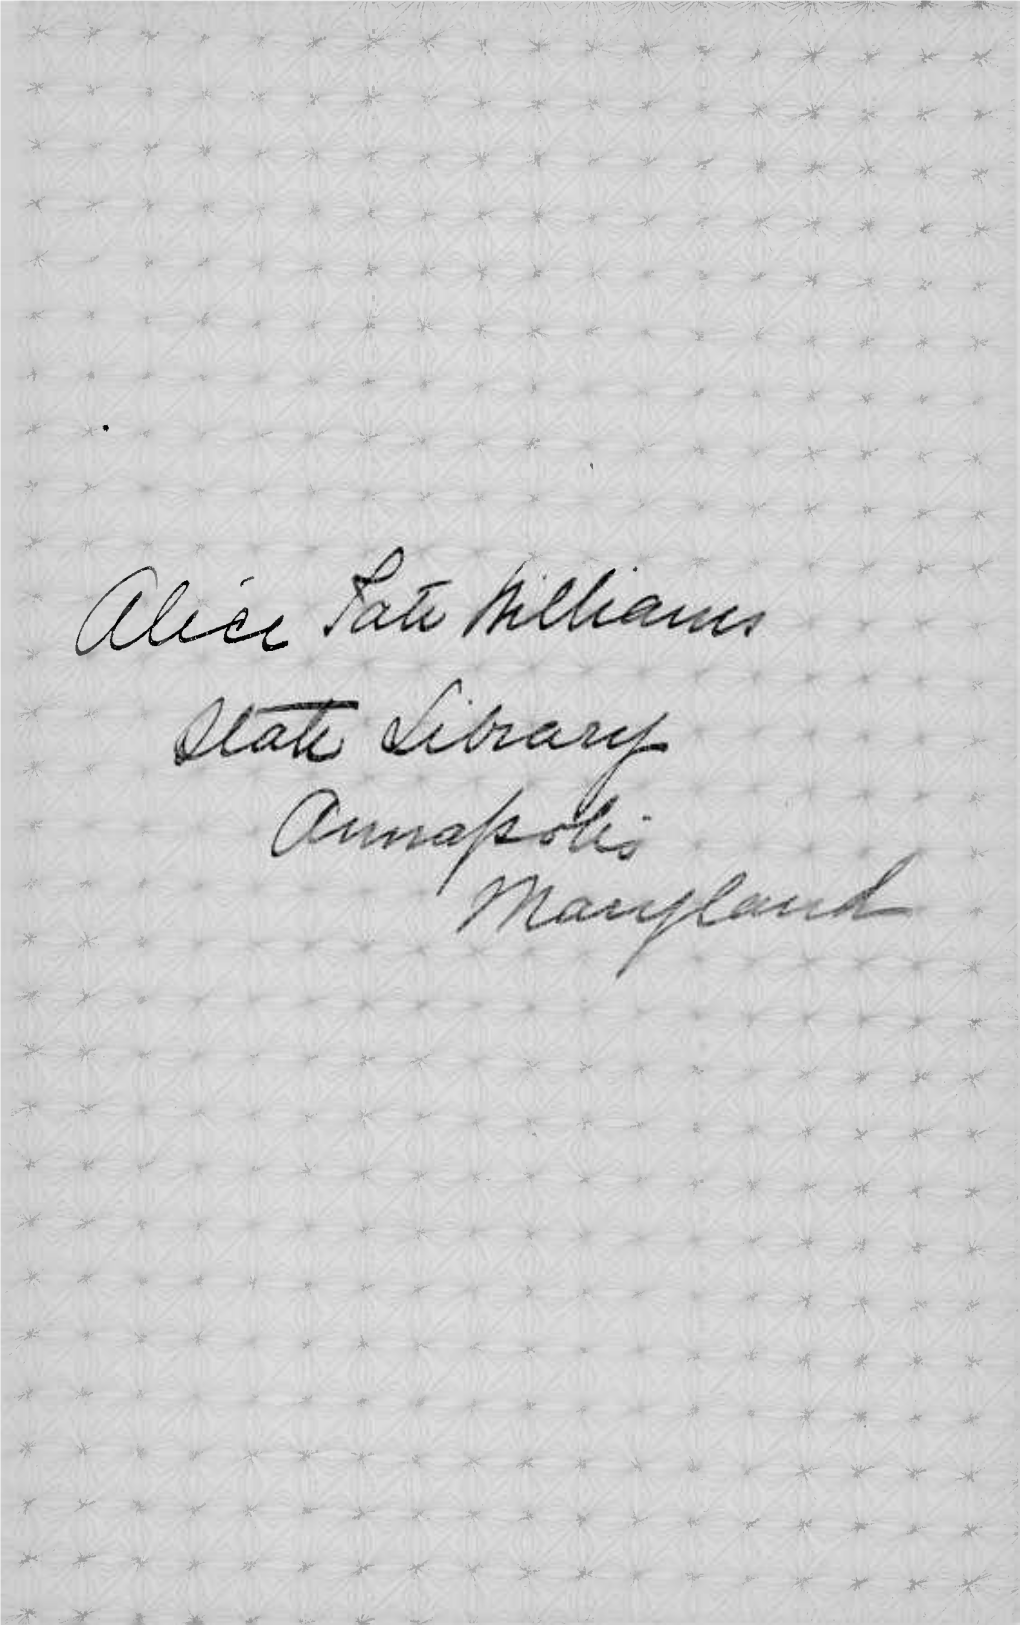 Alice Tate Williams
State Library
Annapolis
Maryland